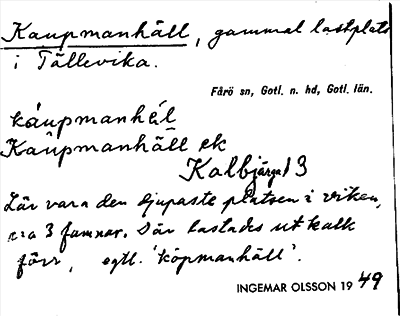 Kaupmanhäll, gammal lastplats
i Tällevika.
Fårö sn, Gotl. n. hd, Gotl. län.
káupmanhél
Kaupmanhäll ek
Kalbjärga 1 3
Lär vara den djupaste platsen i viken,
c:a 3 famnar. Där lastades ut kalk
förr, egtl. 'köpmanhäll'.
INGEMAR OLSSON 1949